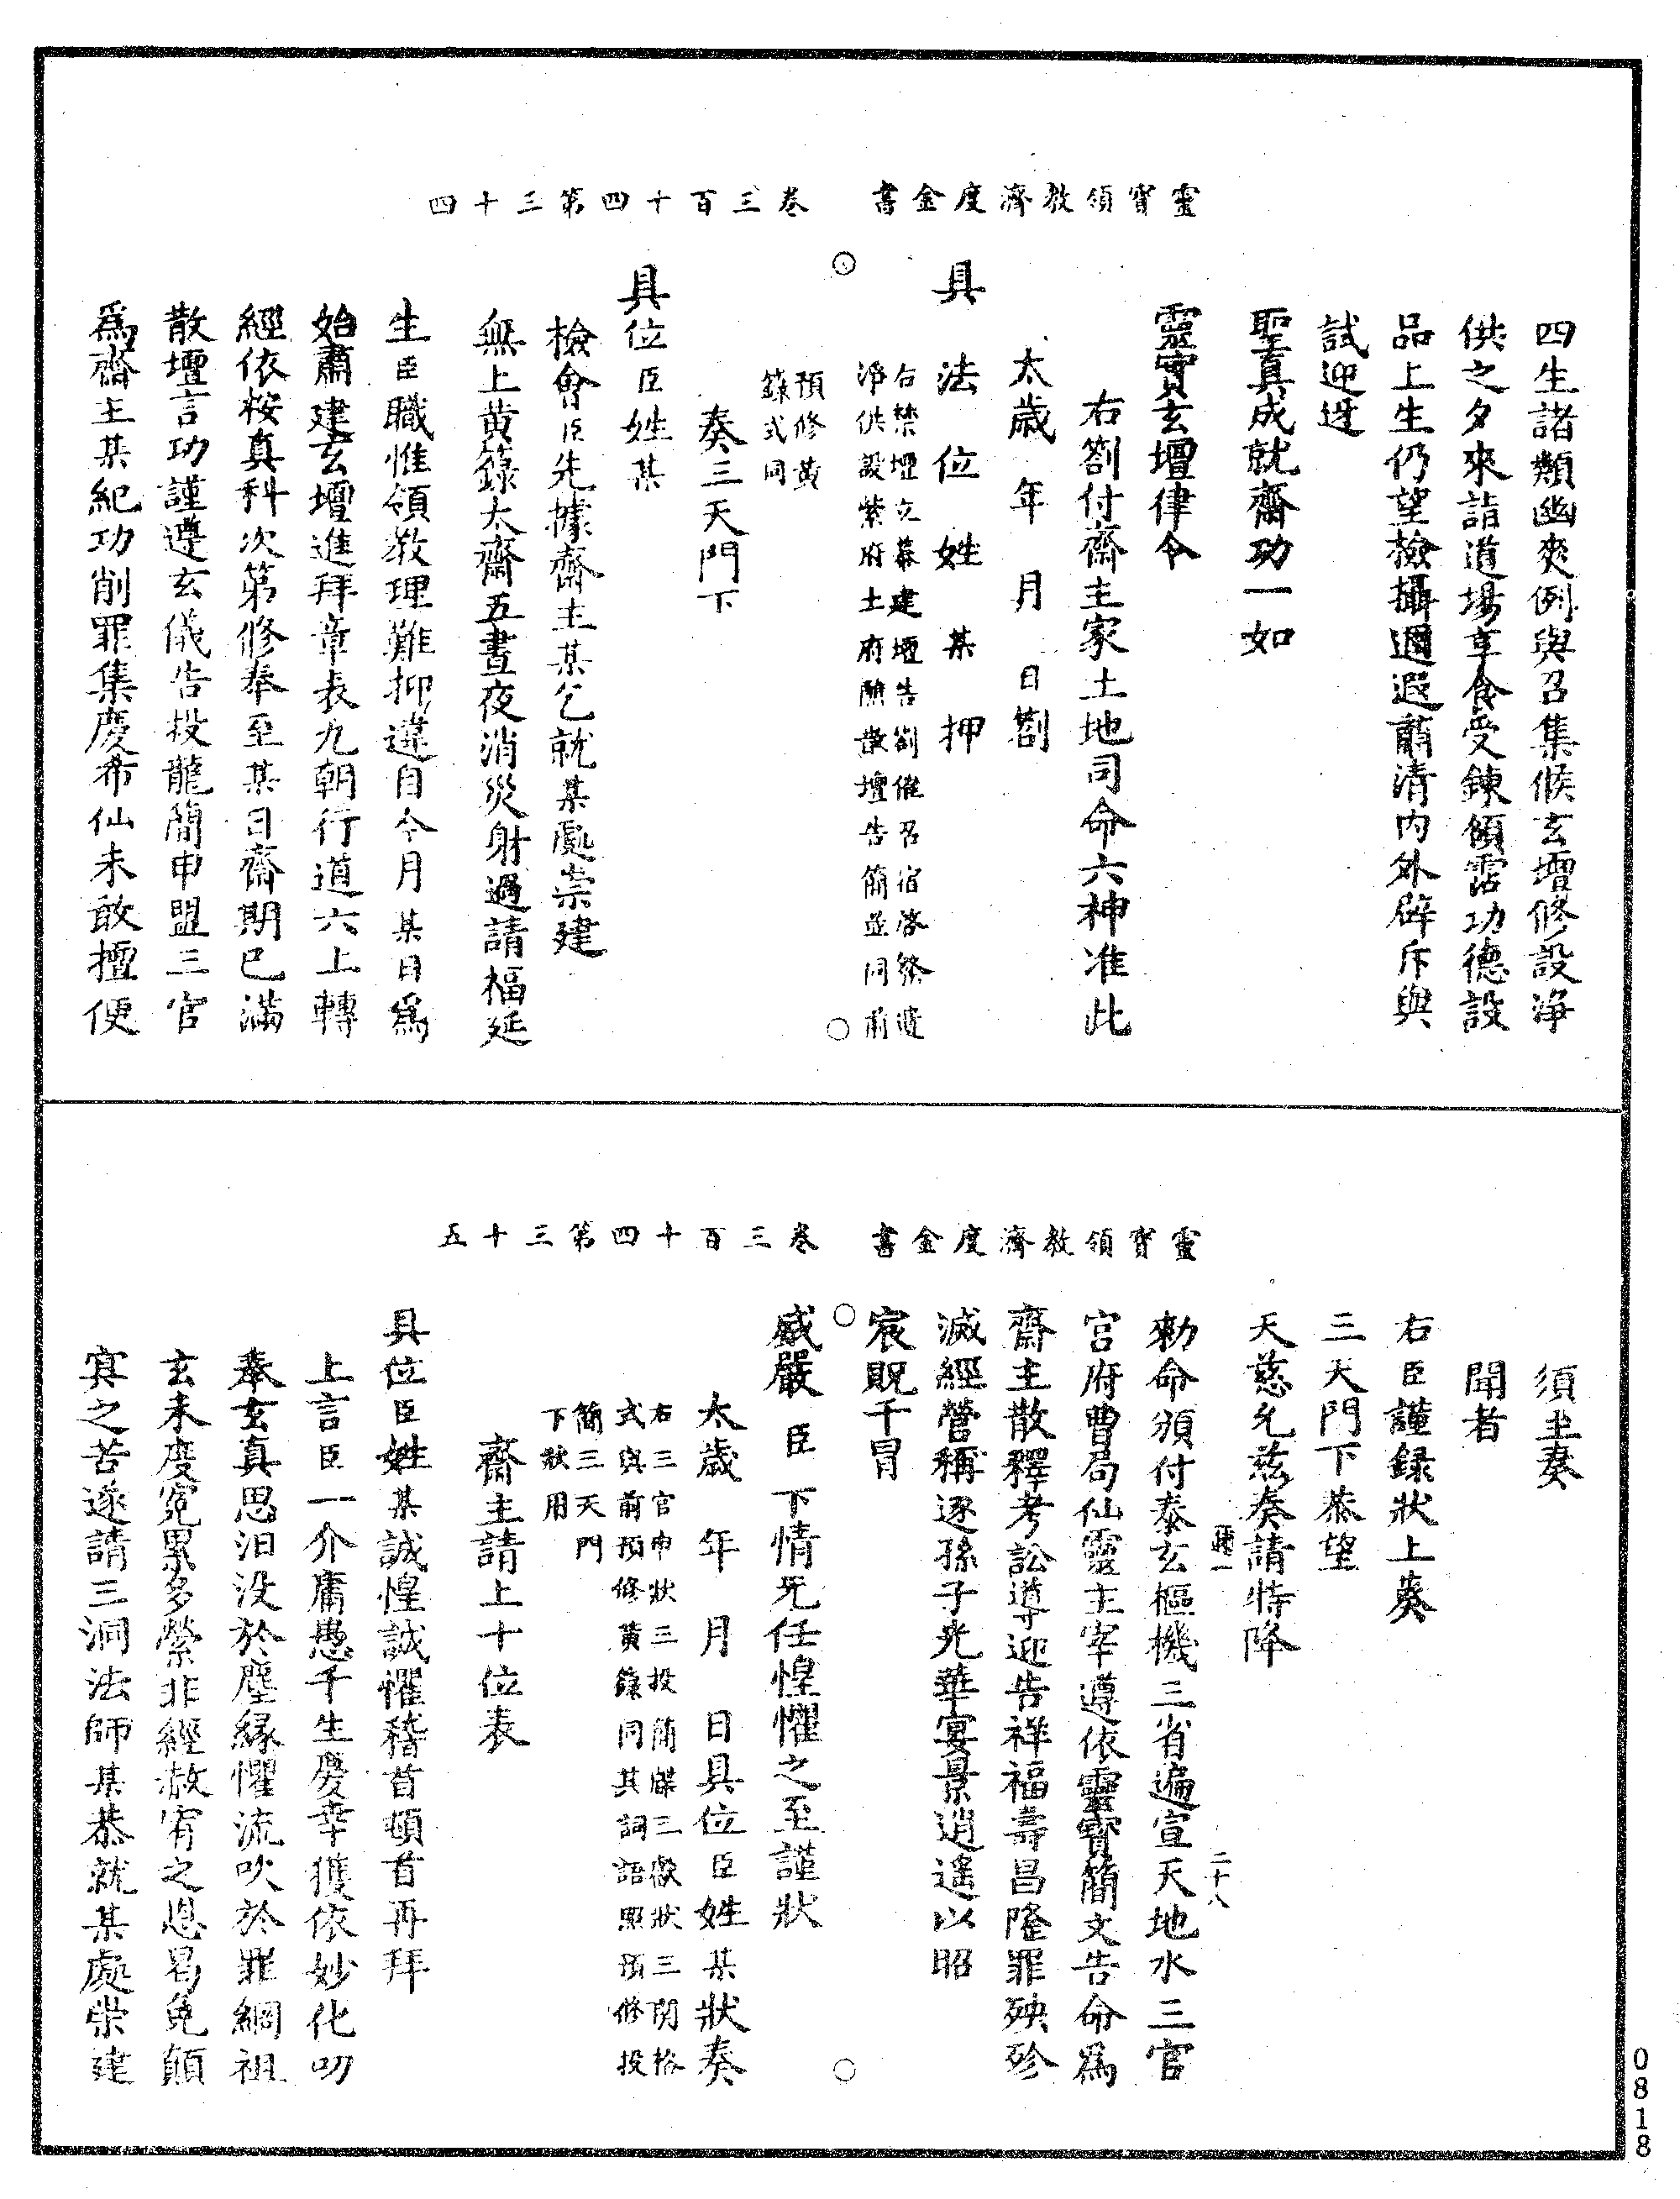 靈寳領教濟度金書　卷三百十四第三十四
四生諸類幽爽例與召集候玄壇修設淨
供之夕來詣道場享食受鍊領霑功德設
品上生仍望檢攝遐邇肅清内外辟斥與
試迎迓
聖真成就齋功一如
靈寳玄壇律令
右劄付齋主家土地司命六神准此
太歲　年　月　日劄
具　法　位　姓　某　押
右禁壇立幕建壇告劄催召宿啓祭遣
淨供設紫府土府醮散壇告簡並同前
預修黄
籙式同
奏三天門下
具位臣姓某
檢會臣先據齋主某乞就某處崇建
無上黄籙大齋五晝夜消災謝過請福延
生臣職惟領教理難抑違自今月某日爲
始肅建玄壇進拜章表九朝行道六上轉
經依按真科次第修奉至某日齋期已滿
散壇言功謹遵玄儀告投龍簡申盟三官
爲齋主某紀功削罪集慶希仙未敢擅便
靈寳領教濟度金書　卷三百十四第三十五
須至奏
聞者
右臣謹録狀上奏
三天門下恭望
天慈允兹奏請特降
二十八
勑命頒付泰玄樞機三省遍宣天地水三官
宫府曹局仙靈主宰遵依靈寳簡文告命爲
齋主散釋考訟導迎告祥福壽昌隆罪殃殄
滅經營稱遂孫子光華宴景逍遥以昭
宸貺干冒
威嚴臣　下情旡任惶懼之至謹狀
太歲　年　月　日具位臣姓某狀奏
右三官申狀三投簡牒三獻狀三閞格
式與前預修黄籙同其詞語照預修投
簡三天門
下狀用
齋主請上十位表
具位臣姓某誠惶誠懼稽首頓首再拜
上言臣一介庸愚千生慶幸獲依妙化叨
奉玄真思汩没於塵緣懼流吹於罪網祖
玄未度寃累多縈非經赦宥之恩曷免顛
冥之苦遂請三洞法師某恭就某處崇建
0818